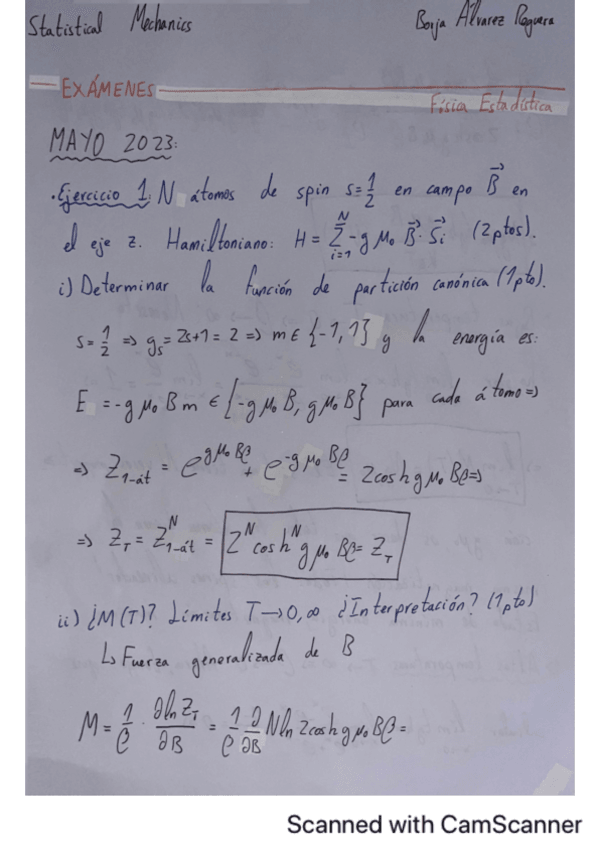 Statistical Mechanics Borja Álvarez Reguera
EXÁMENES
Física Estadística
MAYO 2023:
·Ejercicio 1: N átomos de spin s=1/2 en campo B⃗ en
el eje z. Hamiltoniano: H = Σ_{i=1}^{N} -g μ₀ B⃗·S⃗ᵢ (2ptos).
i) Determinar la función de partición canónica (1pto).
s=1/2 => gₛ=2s+1=2 => m ∈ {-1,1} y la energía es:
E = -g μ₀ B m ∈ {-g μ₀ B, g μ₀ B} para cada átomo =>
=> Z₁₋át = e^{g μ₀ Bβ} + e^{-g μ₀ Bβ} = 2cosh g μ₀ Bβ =>
=> Z_T = Z^N_{1-át} = 2^N cosh^N g μ₀ Bβ = Z_T
ii) ¿M(T)? Límites T→0,∞ ¿Interpretación? (1pto)
↳ Fuerza generalizada de B
M = 1/β · ∂ln Z_T/∂B = 1/β ∂/∂B N ln 2cosh g μ₀ Bβ =
Scanned with CamScanner